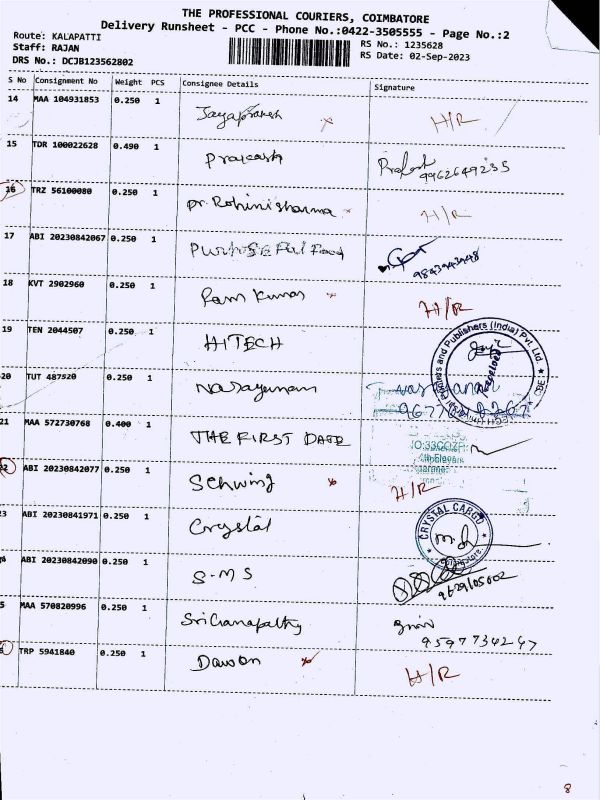 THE PROFESSIONAL COURIERS, COIMBATORE
Delivery Runsheet - PCC - Phone No.:0422-3505555 - Page No.:2
Route: KALAPATTI
RS No.: 1235628
Staff: RAJAN
RS Date: 02-Sep-2023
DRS No.: DCJB123562802
S No Consignment No Weight PCS Consignee Details Signature
14 MAA 104931853 0.250 1 Jayaprakash x H/R
15 TDR 100022628 0.490 1 Prakash 9962649235
16 TRZ 56100080 0.250 1 Dr. Rohini sharma x H/R
17 ABI 20230842067 0.250 1 Food 9843943948
18 KVT 2902960 0.250 1 Ram Kumar x H/R
19 TEN 2044507 0.250 1 HITECH
and Publishers (India) Pvt. Ltd. CBE
20 TUT 487520 0.250 1 Narayanan
21 MAA 572730768 0.400 1 THE FIRST DATE
22 ABI 20230842077 0.250 1 Schwing x H/R
23 ABI 20230841971 0.250 1 Crystal
CRYSTAL CARGO
24 ABI 20230842090 0.250 1 S-MS 9629105002
25 MAA 570820996 0.250 1 Sri Ganapathy 9597734247
26 TRP 5941840 0.250 1 Dawson x H/R
8